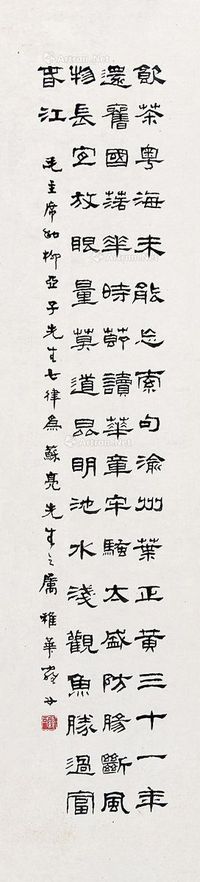 飲茶粵海未能忘索句渝州葉正黃三十一年
還舊國落華時節讀華章牢騷太盛防腸斷風
物長宜放眼量莫道昆明池水淺觀魚勝過富
春江
毛主席和柳亞子先生七律為蘇亮先生之屬